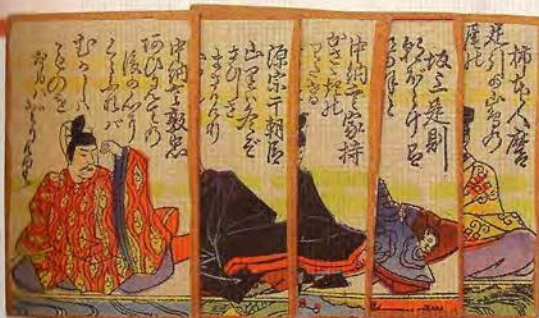 柿本人麿
足引の山鳥の
坂上是則
朝ぼらけ
中納言家持
かささぎの
わたせる
源宗于朝臣
山里は冬ぞ
さびしさ
まさりける
中納言敦忠
あひみての
後の心に
くらぶれば
むかしは
ものを